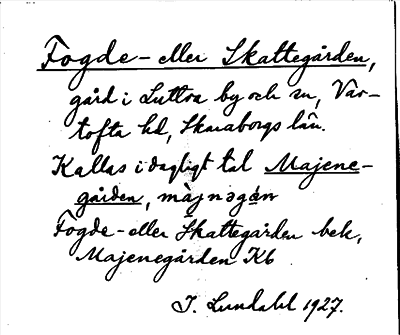 Fogde- eller Skattegården,
gård i Luttra by och sn, Var-
tofta hd, Skaraborgs län.
Kallas i dagligt tal Majene-
gården, màjnəgán
Fogde- eller Skattegården bek,
Majenegården Kb
I. Lundahl 1927.